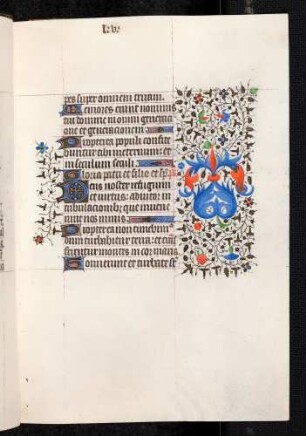 lxv.
pes super omnem terram.
Memores erunt nominis
tui domine in omni generati
one et generacionem
Propterea populi confite
buntur tibi in eternum et
in seculum seculi.
Gloria patri et filio et
Deus noster refugium
et virtus: adiutor in
tribulacionibus que invene
runt nos nimis.
Propterea non timebim
dum turbabitur terra: et tras
ferentur montes in cor maris
Sonuerunt et turbate st